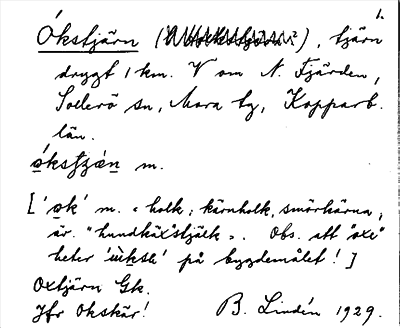 1.
Ókstjärn ( ), tjärn
drygt 1 km. V om N. Fjärden,
Sollerö sn, Mora tg, Kopparb.
län.
m.
['ok' m. = holk; kärnholk, smörkärna,
är. "hundkäxstjälk". Obs. att "oxe"
heter på bygdemålet!]
Oxtjärn Gk.
Jfr Okskär!
B. Lindén 1929.